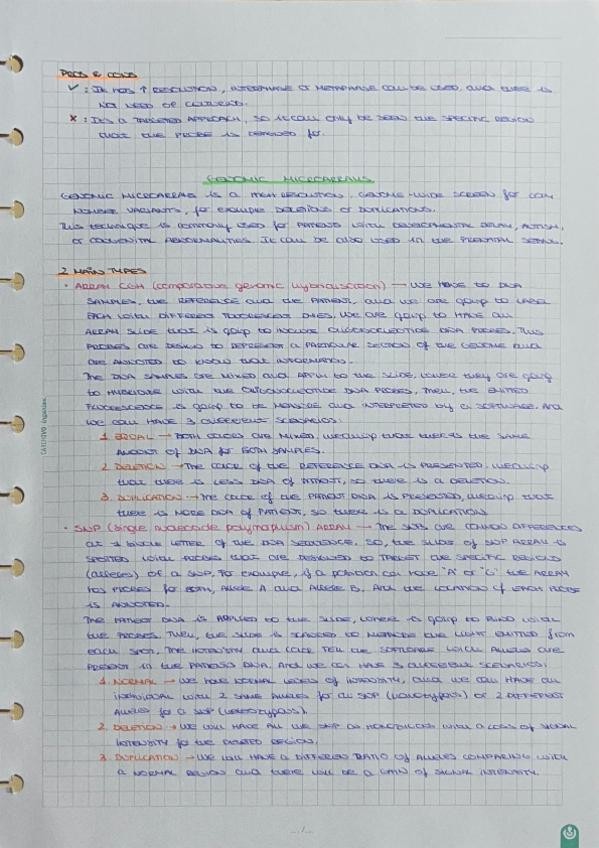 PROS & CONS
✓: IT HAS ↑ RESOLUTION, INTERPHASE OR METAPHASE CAN BE USED, AND THERE IS
NOT NEED OF CULTURING.
✗: IT'S A TARGETED APPROACH, SO IT CAN ONLY BE SEEN THE SPECIFIC REGION
THAT THE PROBE IS DESIGNED FOR.
GENOMIC MICROARRAYS
GENOMIC MICROARRAYS IS A HIGH RESOLUTION, GENOME-WIDE SCREEN FOR COPY
NUMBER VARIANTS, FOR EXAMPLE DELETIONS OR DUPLICATIONS.
THIS TECHNIQUE IS COMMONLY USED FOR PATIENTS WITH DEVELOPMENTAL DELAY, AUTISM,
OR CONGENITAL ABNORMALITIES. IT CAN BE ALSO USED IN THE PRENATAL
2 MAIN TYPES
· ARRAY CGH (comparative genomic hybridisation) → WE HAVE TO DNA
SAMPLES, THE REFERENCE AND THE PATIENT, AND WE ARE GOING TO LABEL
EACH WITH DIFFERENT FLUORESCENT DYES. WE ARE GOING TO HAVE AN
ARRAY SLIDE THAT IS GOING TO INCLUDE OLIGONUCLEOTIDE DNA PROBES. THIS
PROBES ARE DESIGN TO REPRESENT A PARTICULAR SECTION OF THE GENOME AND
ARE ANNOTED TO KNOW THAT INFORMATION.
THE DNA SAMPLES ARE MIXED AND APPLY TO THE SLIDE, WHERE THEY ARE GOING
TO HYBRIDISE WITH THE OLIGONUCLEOTIDE DNA PROBES. THEN, THE EMITTED
FLUORESCENCE IS GOING TO BE MEASURE AND INTERPRETED BY A SOFTWARE. AND
WE CAN HAVE 3 DIFFERENT SCENARIOS:
1. EQUAL → BOTH COLORS ARE MIXED, MEANING THAT THERE IS THE SAME
AMOUNT OF DNA FOR BOTH SAMPLES.
2. DELETION → THE COLOR OF THE REFERENCE DNA IS PRESENTED, MEANING
THAT THERE IS LESS DNA OF PATIENT, SO THERE IS A DELETION.
3. DUPLICATION → THE COLOR OF THE PATIENT DNA IS PRESENTED, MEANING THAT
THERE IS MORE DNA OF PATIENT, SO THERE IS A DUPLICATION.
· SNP (single nucleotide polymorphism) ARRAY → THE SNPS ARE COMMON DIFFERENCES
AT A SINGLE LETTER OF THE DNA SEQUENCE. SO, THE SLIDE OF SNP ARRAY IS
SPOTTED WITH PROBES THAT ARE DESIGNED TO TARGET THE SPECIFIC REGIONS
(alleles) OF A SNP. FOR EXAMPLE, IF A POSITION CAN HAVE "A" OR "G" THE ARRAY
HAS PROBES FOR BOTH, ALLELE A AND ALLELE B. AND THE LOCATION OF EACH PROBE
IS ANNOTED.
THE PATIENT DNA IS APPLIED TO THE SLIDE, WHERE IS GOING TO BIND WITH
THE PROBES. THEN, THE SLIDE IS SCANNED TO MEASURE THE LIGHT EMITTED FROM
EACH SPOT. THE INTENSITY AND COLOR TELL THE SOFTWARE WHICH ALLELES ARE
PRESENT IN THE PATIENT'S DNA. AND WE CAN HAVE 3 DIFFERENT SCENARIOS:
1. NORMAL → WE HAVE NORMAL LEVELS OF INTENSITY, AND WE CAN HAVE AN
INDIVIDUAL WITH 2 SAME ALLELES FOR A SNP (homozygous) OR 2 DIFFERENT
ALLELES FOR A SNP (heterozygous).
2. DELETION → WE WILL HAVE ALL THE SNP AS HOMOZYGOUS WITH A LOSS OF SIGNAL
INTENSITY FOR THE DELETED REGION.
3. DUPLICATION → WE WILL HAVE A DIFFERENT RATIO OF ALLELES COMPARING WITH
A NORMAL REGION AND THERE WILL BE A GAIN OF SIGNAL INTENSITY.
.../...